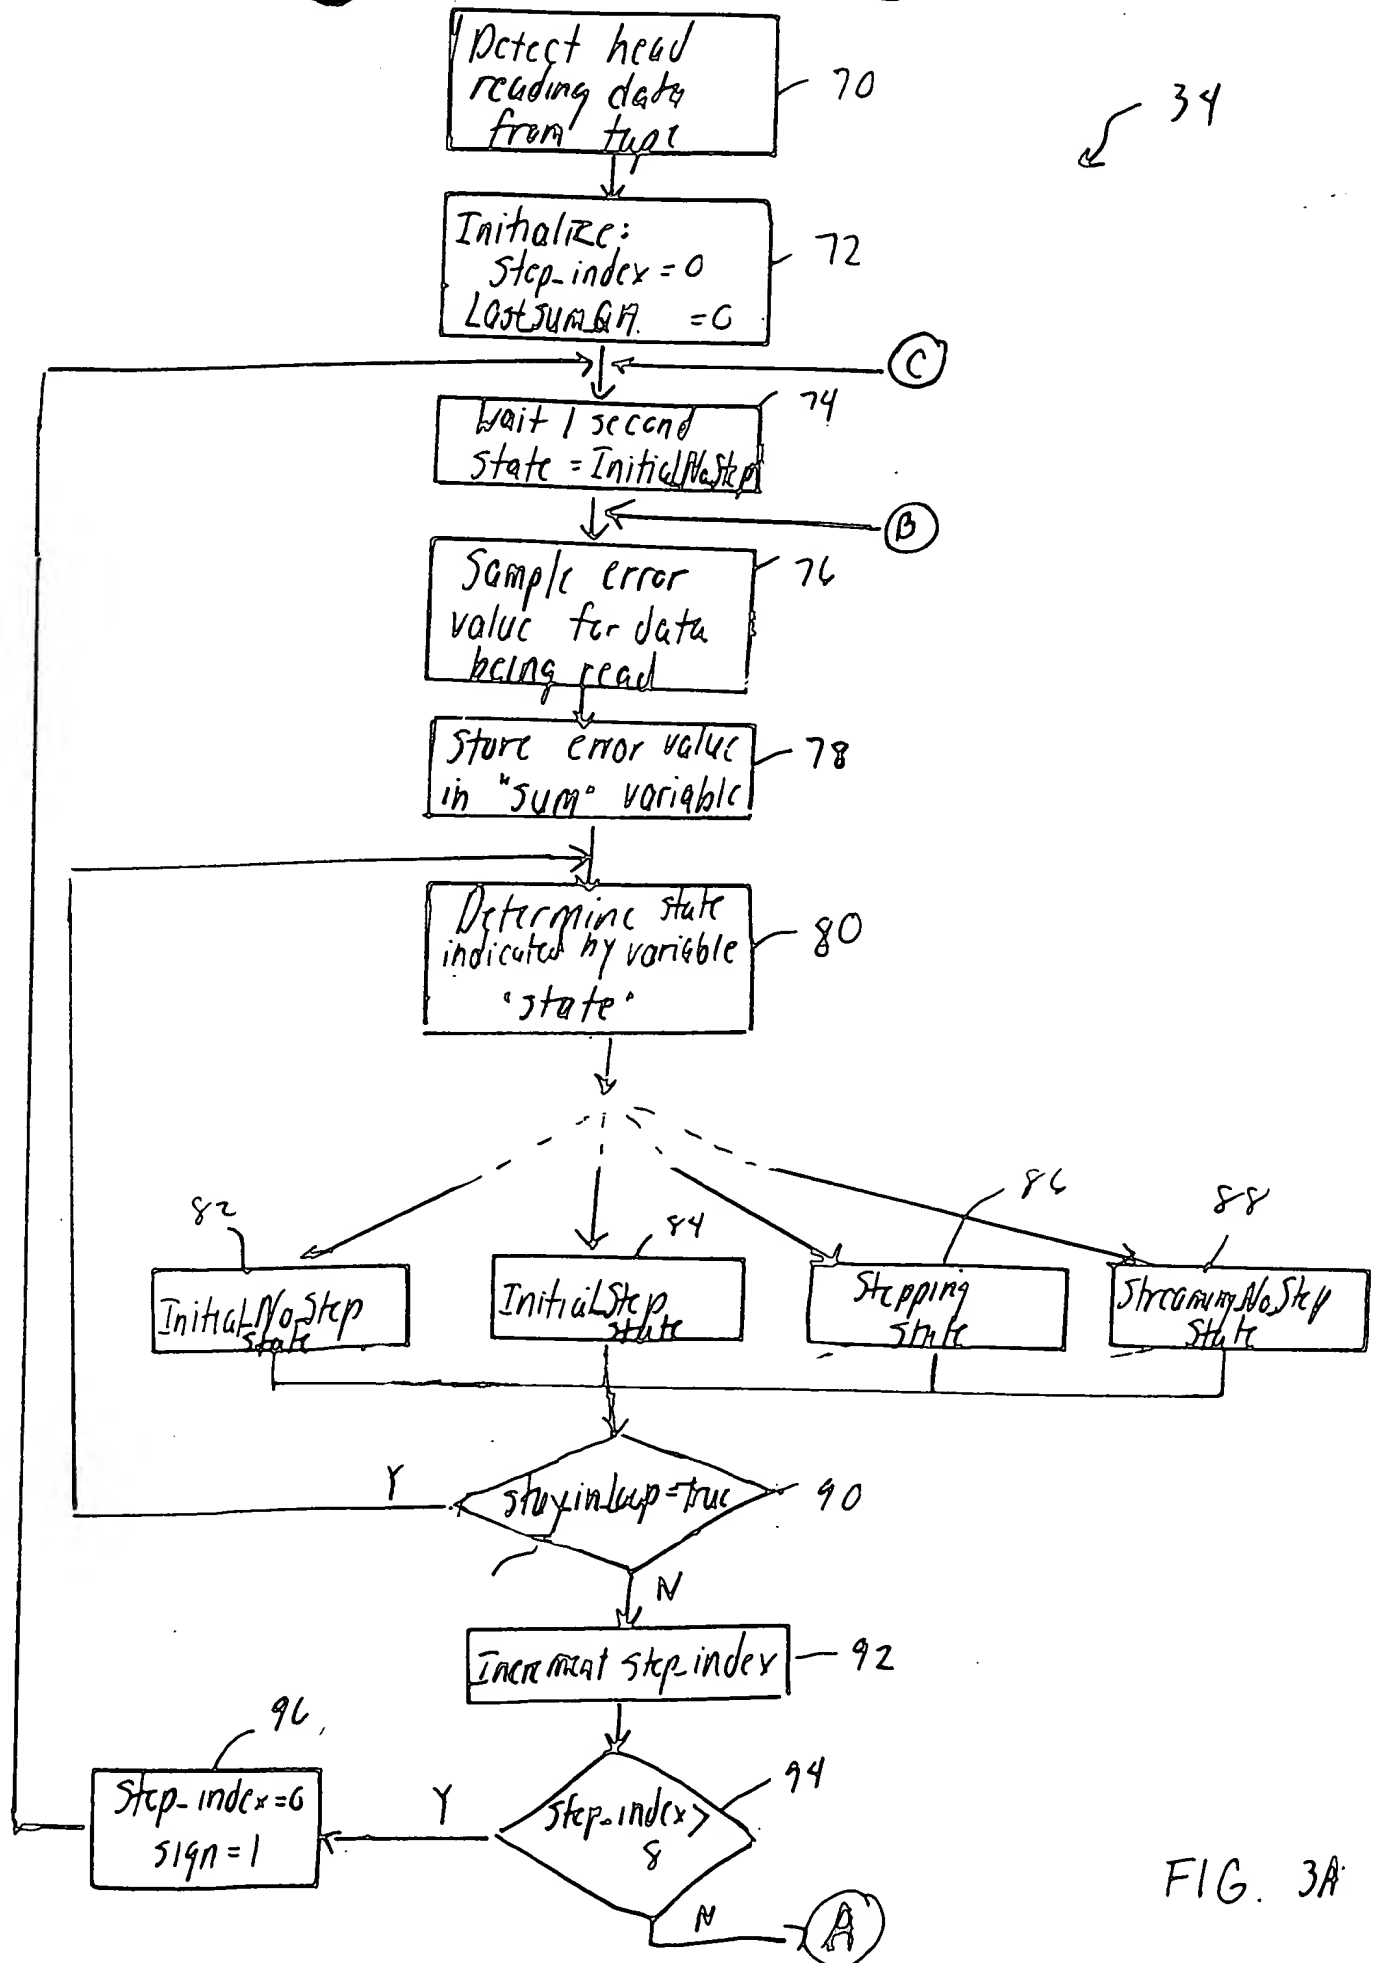 Detect head
reading data
from tape
70
34
Initialize:
step_index = 0
= 0
72
C
Wait 1 second
state = Initial_No_Step
74
B
Sample error
value for data
being read
76
Store error value
in "sum" variable
78
Determine state
indicated by variable
"state"
80
82
84
86
88
Initial_No_Step
state
Initial_Step
state
Stepping
state
Streaming_No_Step
state
Y
stay_in_loop = true
90
N
Increment step_index
92
96
step_index = 0
sign = 1
Y
step_index >
8
94
N
A
FIG. 3A